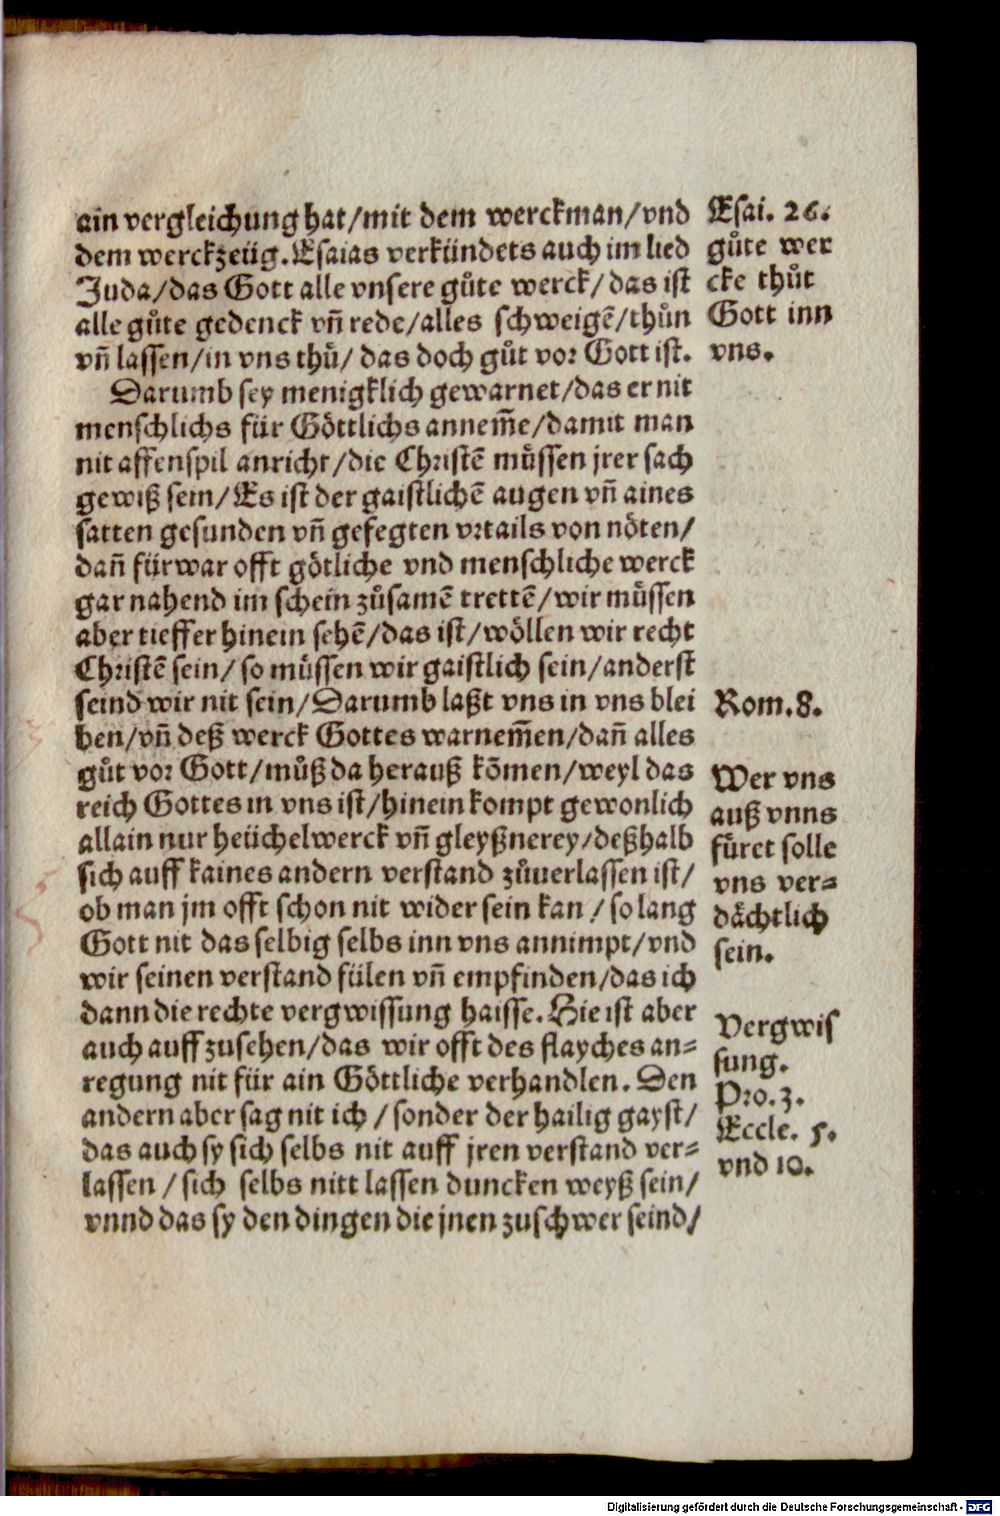 ain vergleichung hat/mit dem werckman/vnd
dem werckzeüg. Esaias verkündets auch im lied
Juda/das Gott alle vnsere gůte werck/das ist
alle gůte gedenck vñ rede/alles schweigẽ/thůn
vñ lassen/in vns thů/ das doch gůt vor Gott ist.
Darumb sey menigklich gewarnet/das er nit
menschlichs für Göttlichs annem̃e/damit man
nit affenspil anricht/die Christẽ můssen jrer sach
gewiß sein/Es ist der gaistlichẽ augen vñ aines
satten gesunden vñ gefegten vrtails von nöten/
dañ fürwar offt götliche vnd menschliche werck
gar nahend im schein zůsamẽ trettẽ/wir můssen
aber tieffer hinein sehẽ/das ist/wöllen wir recht
Christẽ sein/so můssen wir gaistlich sein/anderst
seind wir nit sein/Darumb laßt vns in vns blei
ben/vñ deß werck Gottes warnem̃en/dañ alles
gůt vor Gott/můß da herauß kõmen/weyl das
reich Gottes in vns ist/hinein kompt gewonlich
allain nur heüchelwerck vñ gleyßnerey/deßhalb
sich auff kaines andern verstand zůuerlassen ist/
ob man jm offt schon nit wider sein kan/so lang
Gott nit das selbig selbs inn vns annimpt/vnd
wir seinen verstand fülen vñ empfinden/das ich
dann die rechte vergwissung haisse. Hie ist aber
auch auff zusehen/das wir offt des flayches an⸗
regung nit für ain Göttliche verhandlen. Den
andern aber sag nit ich/sonder der hailig gayst/
das auch sy sich selbs nit auff jren verstand ver⸗
lassen/sich selbs nitt lassen duncken weyß sein/
vnnd das sy den dingen die jnen zuschwer seind/
Esai. 26.
gůte wer
cke thůt
Gott inn
vns.
Rom. 8.
Wer vns
auß vnns
fůret solle
vns ver⸗
dächtlich
sein.
Vergwis
sung.
Pro. 3.
Eccle. 5.
vnd 10.
Digitalisierung gefördert durch die Deutsche Forschungsgemeinschaft - DFG